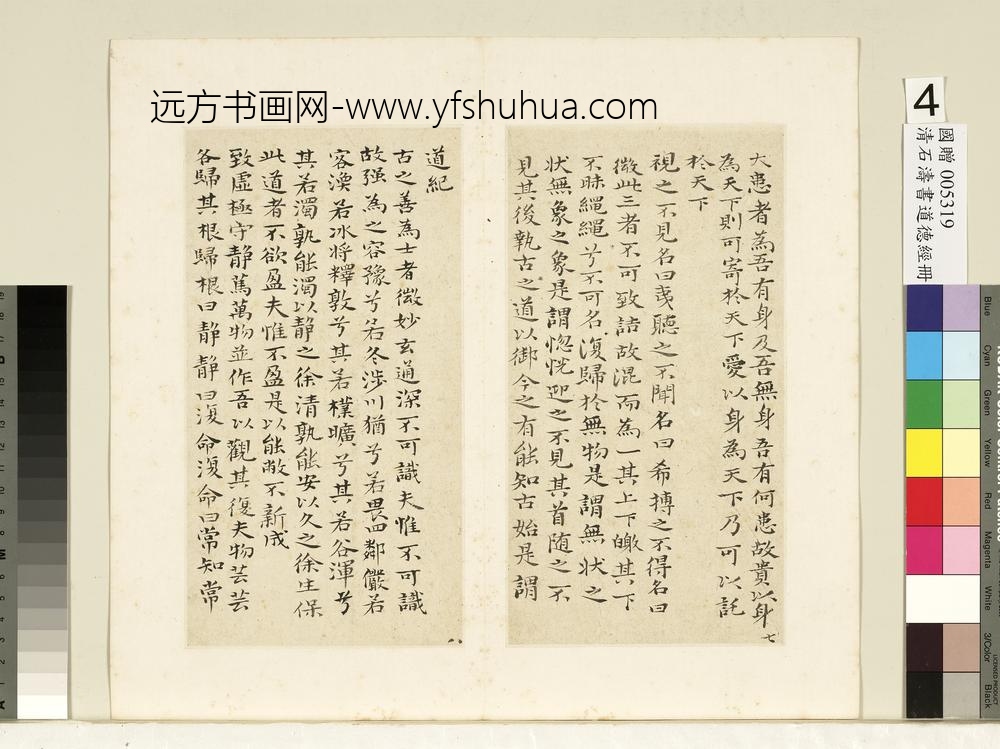 远方书画网-www.yfshuhua.com
4
國贈 005319
清石濤書道德經冊
大患者為吾有身及吾無身吾有何患故貴以身
為天下則可寄於天下愛以身為天下乃可以託
於天下
視之不見名曰夷聽之不聞名曰希搏之不得名曰
微此三者不可致詰故混而為一其上下皦其下
不昧繩繩兮不可名復歸於無物是謂無狀之
狀無象之象是謂惚恍迎之不見其首随之不
見其後執古之道以御今之有能知古始是謂
七
道紀
古之善為士者微妙玄通深不可識夫惟不可識
故强為之容豫兮若冬涉川猶兮若畏四鄰儼若
客渙若冰将釋敦兮其若樸曠兮其若谷渾兮
其若濁孰能濁以静之徐清孰能安以久之徐生保
此道者不欲盈夫惟不盈是以能敝不新成
致虛極守静篤萬物並作吾以觀其復夫物芸芸
各歸其根歸根曰静静曰復命復命曰常知常
八
Blue
Cyan
Green
Yellow
Red
Magenta
White
3/Color
Black